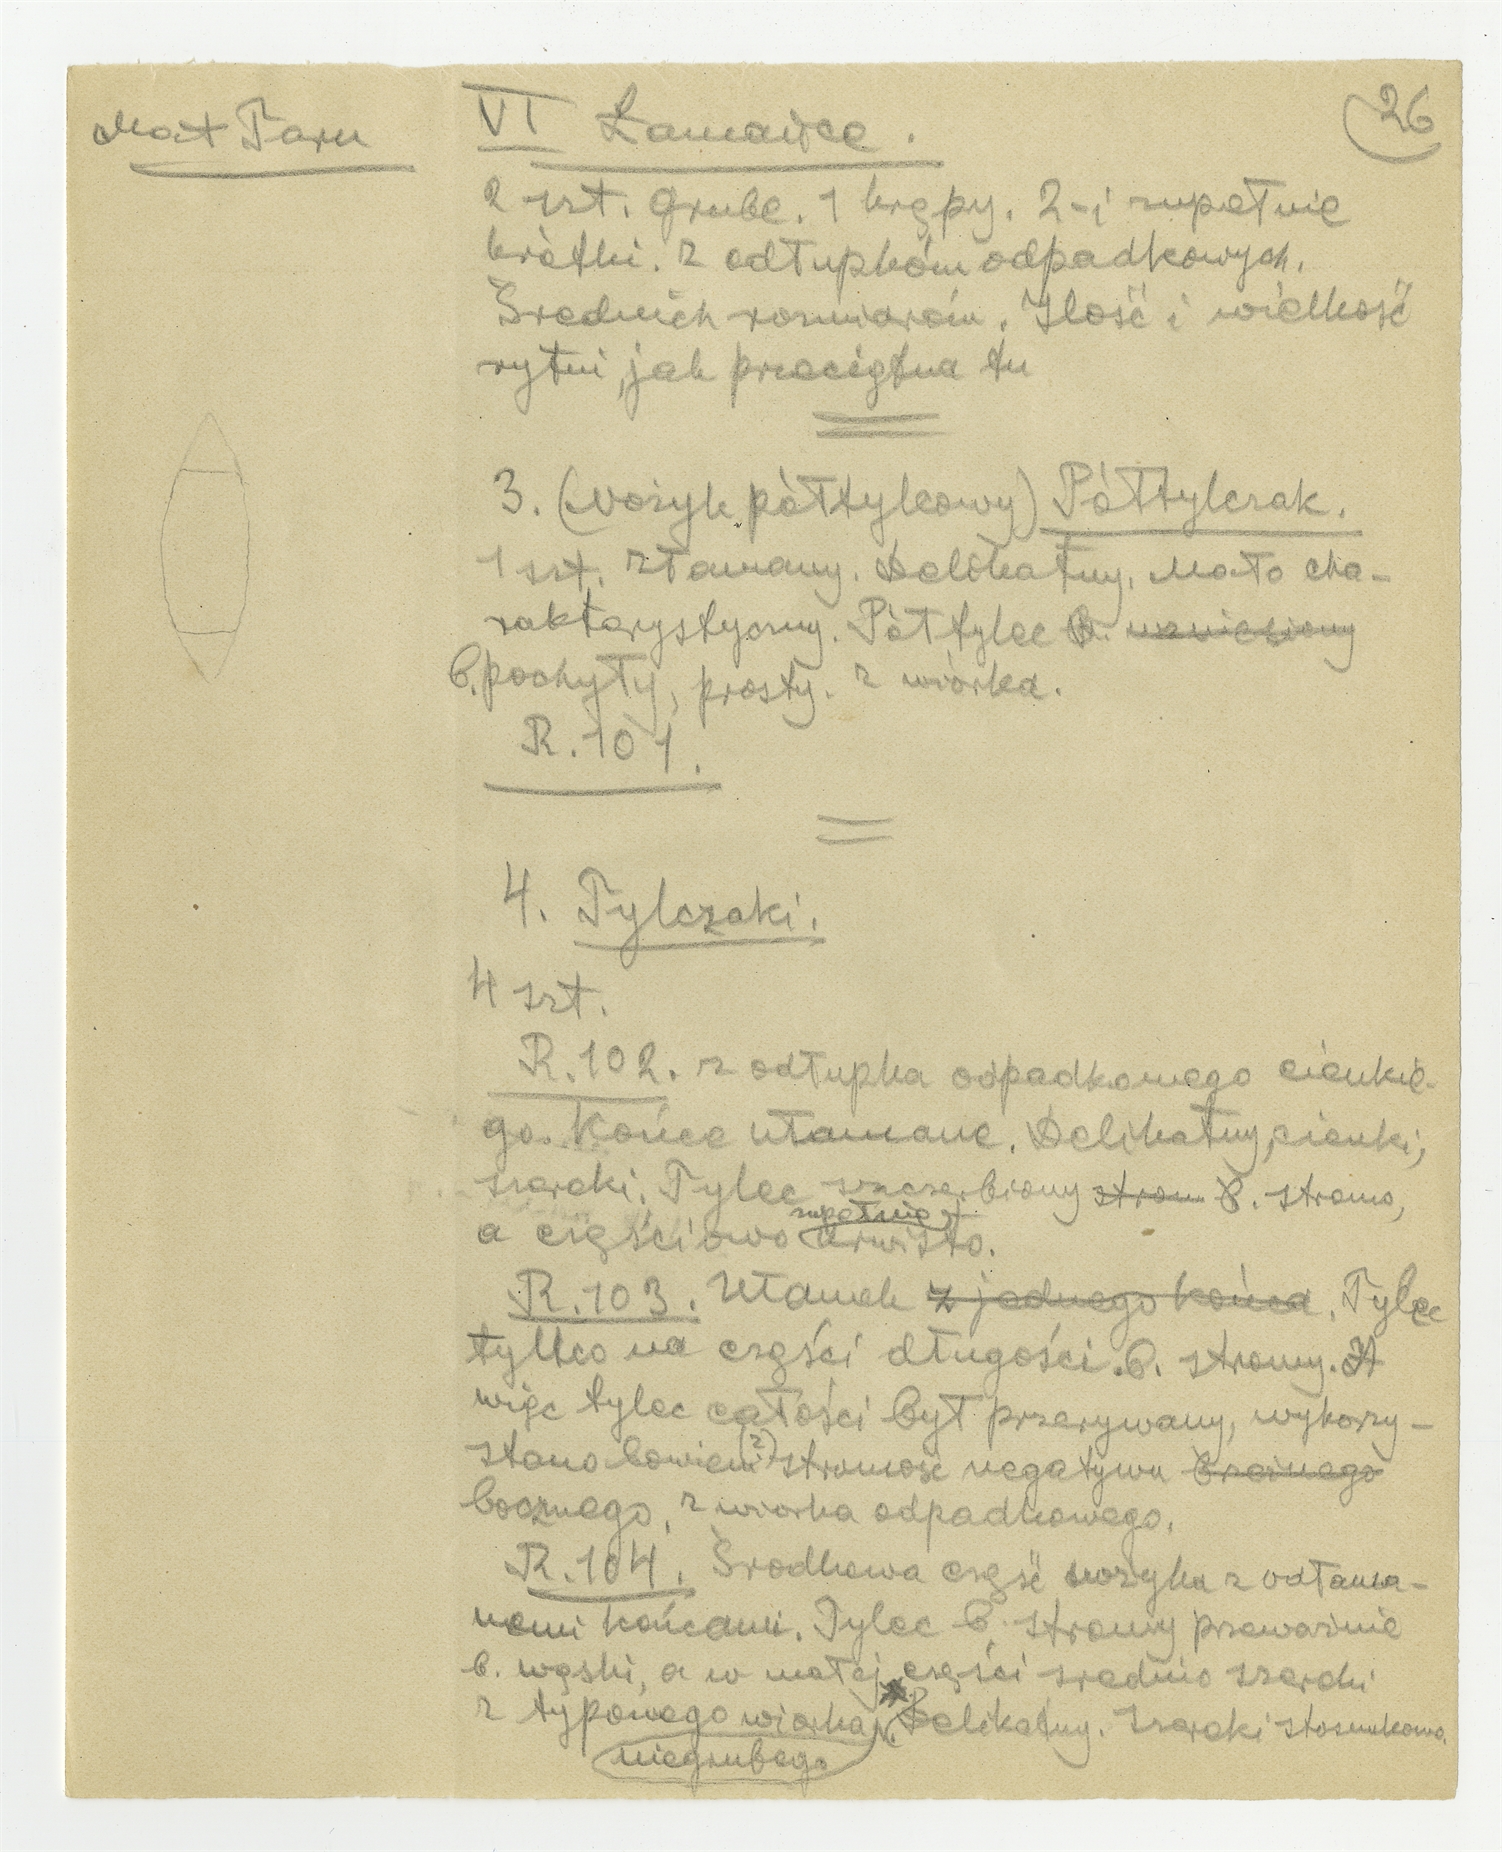 Mat Tarn
VI Łamańce.
26
2 szt. Grube. 1 krępy. 2-i zupełnie
krótki. z odłupków odpadkowych.
Średnich rozmiarów. Ilość i wielkość
rytni, jak przeciętna tu
3. (Nożyk półtylcowy) Półtylczak.
1 szt. złamany. Delikatny. Mało cha-
rakterystyczny. Półtylec b. wzniesiony
b. pochyły, prosty. z wiórka.
R. 101.
4. Tylczaki.
4 szt.
R. 102. z odłupka odpadkowego cienkie-
go. Końce ułamane. Delikatny, cienki,
szeroki. Tylec szczerbiony strom b. stromo,
zupełnie
a częściowo urwisto.
R. 103. Ułamek z jednego końca. Tylec
tylko na części długości. b. stromy. A
więc tylec całości był przerywany, wykorzy-
stano bowiem (?) stromość negatywu
bocznego. z wiórka odpadkowego.
R. 104. Środkowa część nożyka z odłama-
nemi końcami. Tylec b. stromy przeważnie
b. wąski, a w małej części średnio szeroki
z typowego wiórka. Delikatny. szeroki stosunkowo.
niegrubego